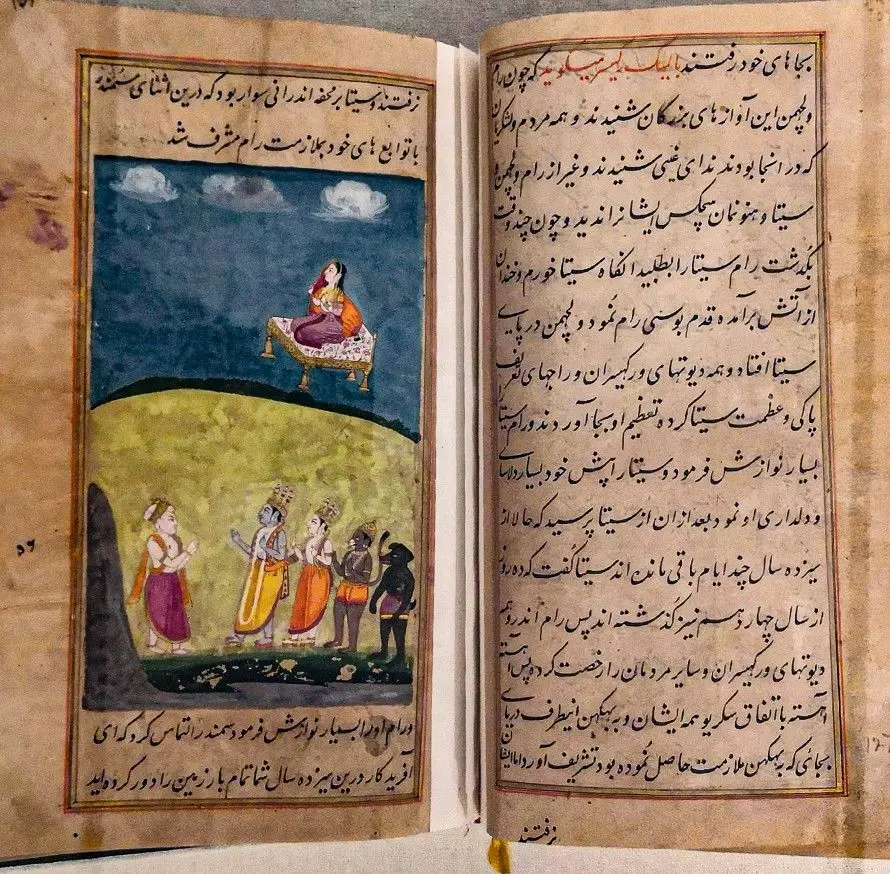 بجا های خود رفتند بالمیک رکهیسر میگوید که چون رام
و لچهمن این آوازهای بزرگان شنیدند و همه مردم و لشکریان
که در آنجا بودند ندای غیبی شنیدند و غیر از رام و لچهمن و
سیتا و هنونمان هیچکس ایشانرا ندید و چون چند وقت
بگذشت رام سیتا را بطلبید آنگاه سیتا خورم و خندان
از آتش برآمده قدم بوسی رام نمود و لچهمن در پای
سیتا افتاد و همه دیوتهای و رکهیسران و راجهای تعریف
پاکی و عظمت سیتا کرده تعظیم او بجا آوردند و رام سیتا را
بسیار نوازش فرمود و سیتا را پیش خود بسیار دلاسای
و دلداری او نمود بعد از آن از سیتا پرسید که حالا از
سیزده سال چند ایام باقی مانده اند سیتا گفت که ده روز
از سال چهاردهم نیز گذشته اند پس رام اندر و همه
دیوتهای و رکهیسران و سایر مردمان را رخصت کرده پس آهسته
آهسته با اتفاق سکریو همه ایشان و ببهیکهن اینطرف دریای
بجای که ببهیکهن ملازمت حاصل نموده بود تشریف آورد اما ایشان
نرفتند
نرفتند و سیتا بر محفه اندرانی سوار بود که درین اثنای سمندر
با توابع های خود بملازمت رام مشرف شد
و رام او را بسیار نوازش فرمود سمندر التماس کرد که ای
آفریدکار درین سیزده سال شما تمام بار زمین را دور کرده اید